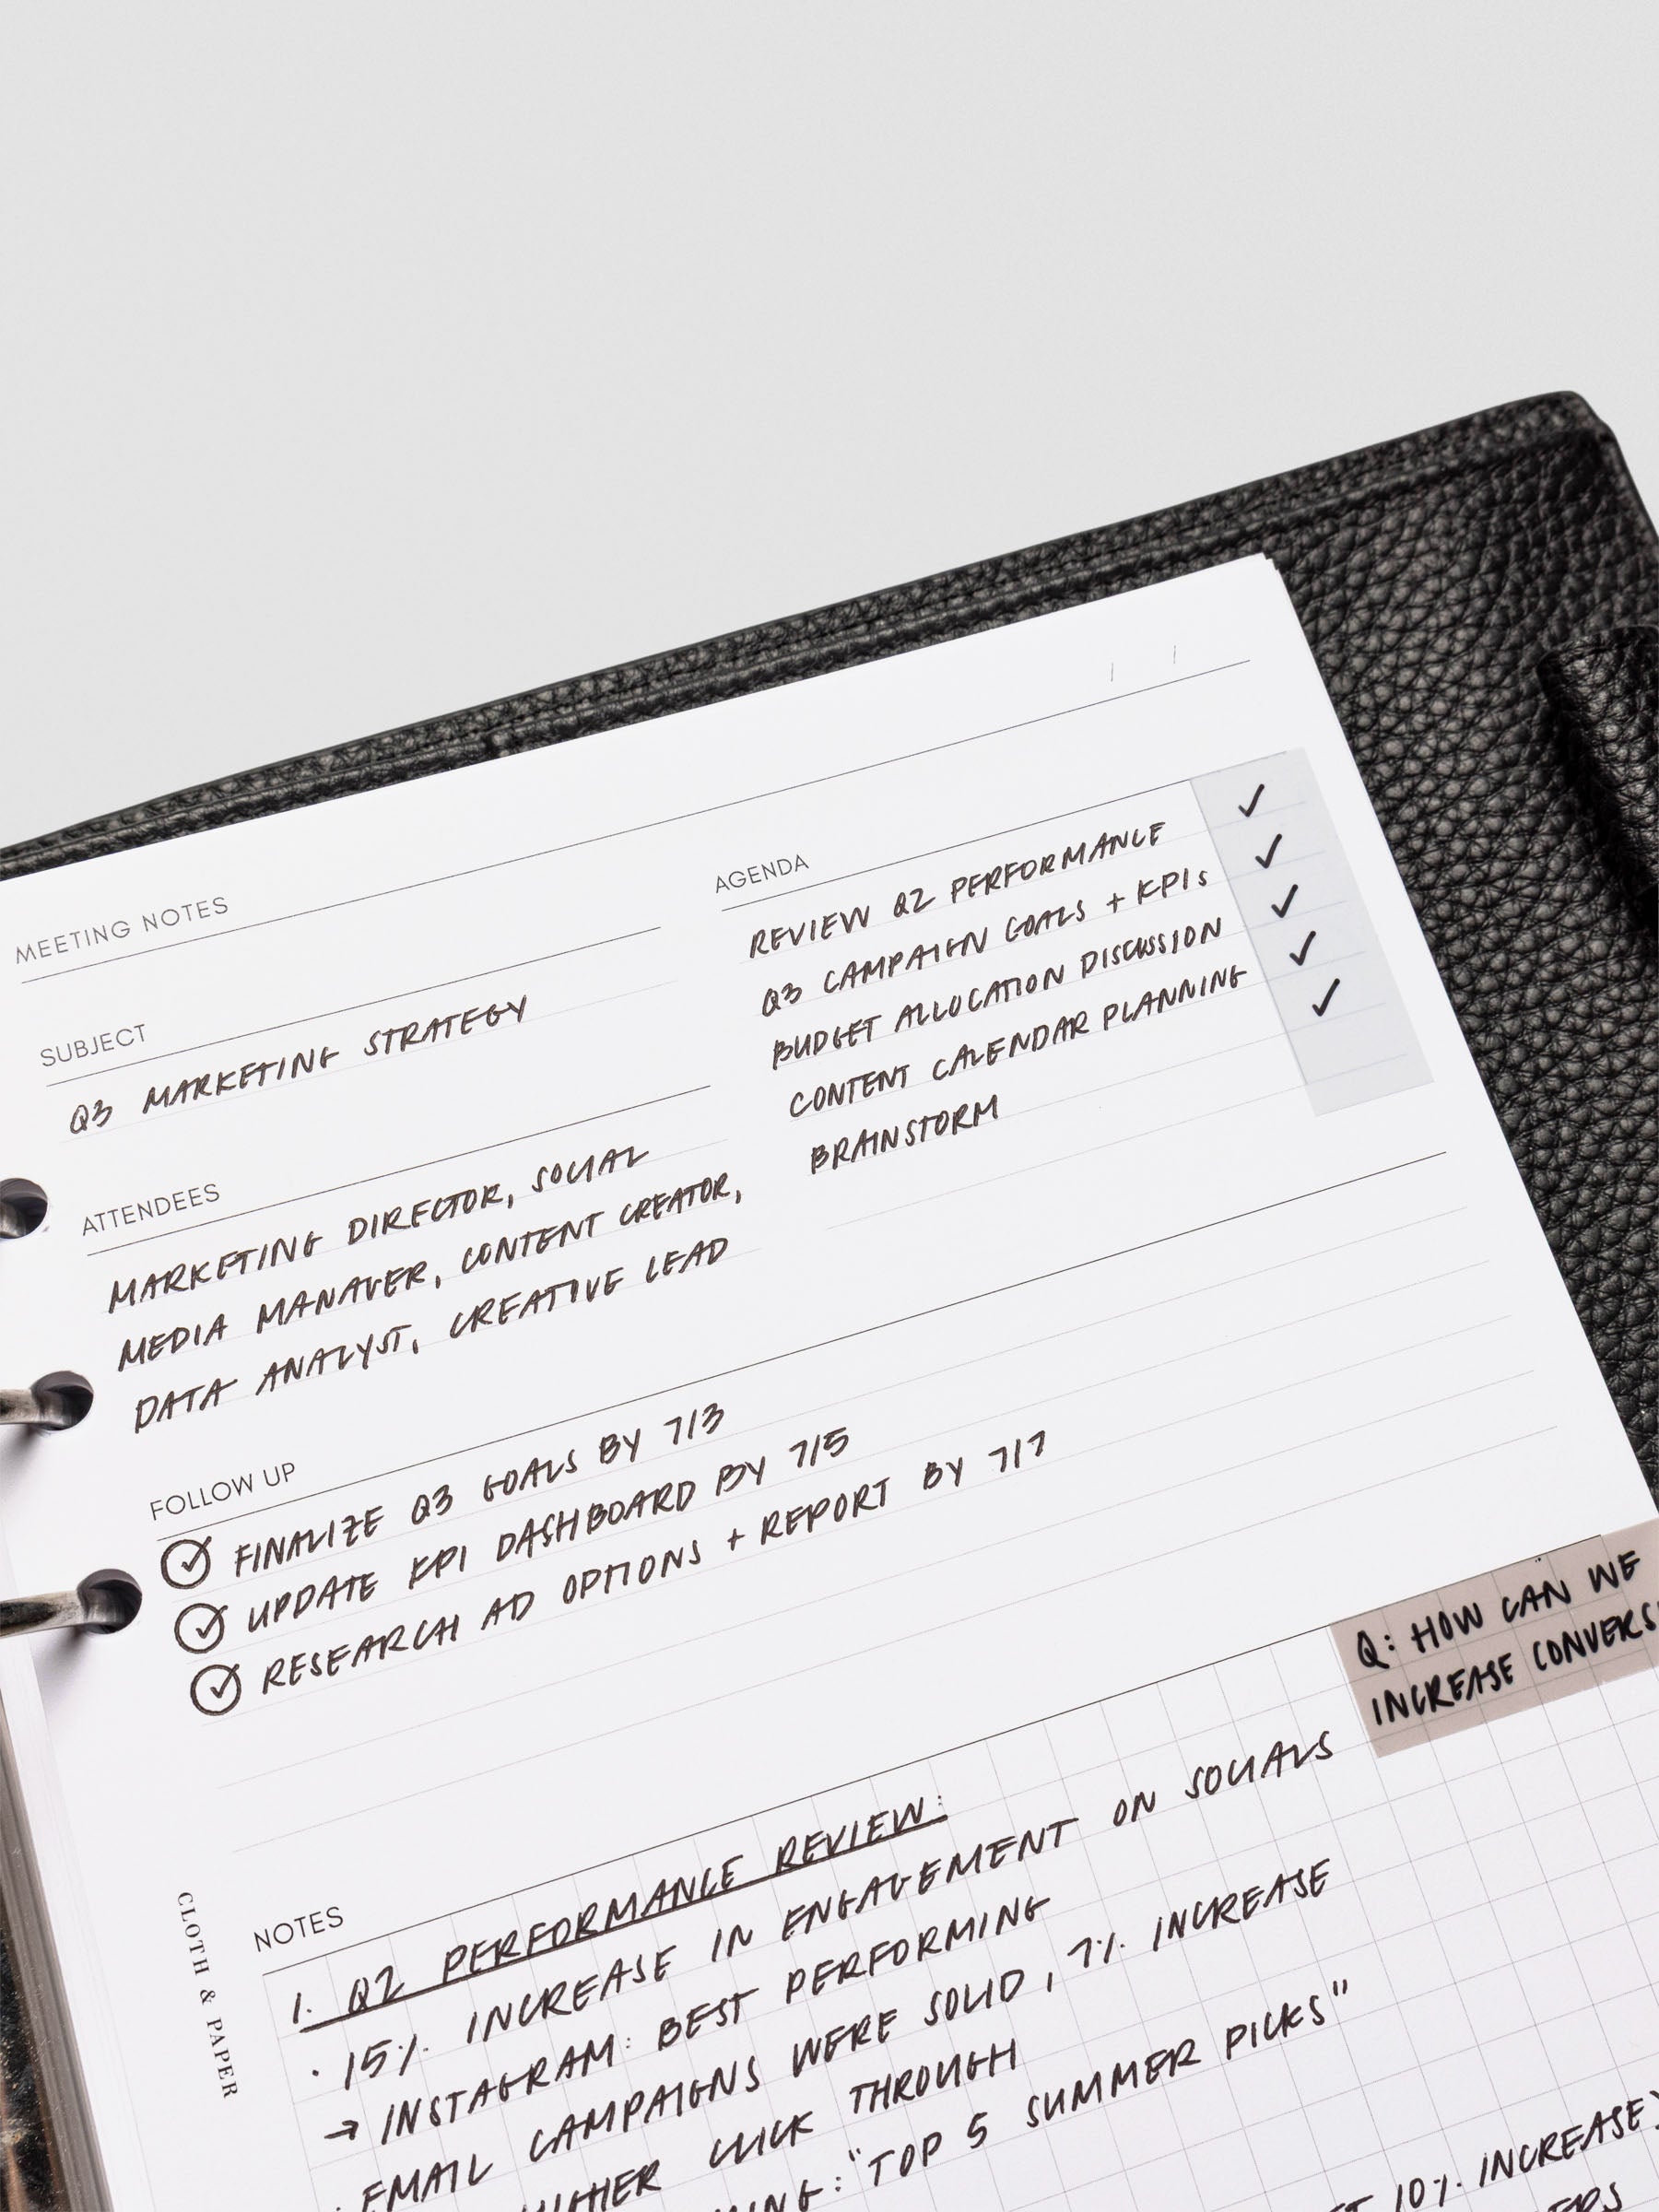 MEETING NOTES
SUBJECT
Q3 MARKETING STRATEGY
ATTENDEES
MARKETING DIRECTOR, SOCIAL
MEDIA MANAGER, CONTENT CREATOR,
DATA ANALYST, CREATIVE LEAD
AGENDA
REVIEW Q2 PERFORMANCE ✓
Q3 CAMPAIGN GOALS + KPIs ✓
BUDGET ALLOCATION DISCUSSION ✓
CONTENT CALENDAR PLANNING ✓
BRAINSTORM ✓
FOLLOW UP
FINALIZE Q3 GOALS BY 7/3
UPDATE KPI DASHBOARD BY 7/5
RESEARCH AD OPTIONS + REPORT BY 7/7
Q: HOW CAN WE
INCREASE
NOTES
1. Q2 PERFORMANCE REVIEW:
· 15% INCREASE IN ENGAGEMENT ON SOCIALS
→ INSTAGRAM: BEST PERFORMING
· EMAIL CAMPAIGNS WERE SOLID, 7% INCREASE
HIGHER CLICK THROUGH
: "TOP 5 SUMMER PICKS"
10% INCREASE)
CLOTH & PAPER